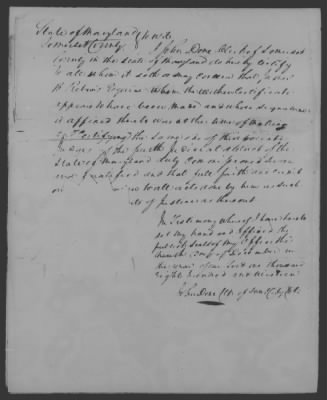 State of Maryland
Somerset County to wit
I John Done Clerk of Somerset
County in the State of Maryland do hereby Certify
to all whom it doth or may Concern that
Esquire whom the within Certificate
appears to have been made and whose signature
is affixed thereto was at the time of making
and Certifying the same one of the associate
Judges of the Judicial district of the
State of Maryland duly Commissioned
and qualified and that full faith and credit
to all acts done by him as such
of Justice as thereout
In Testimony whereof I have hereto
set my hand and affixed the
public seal of my office this
day of December in
the year of our Lord one thousand
eight hundred and nineteen
John Done Clk of Som. Cty